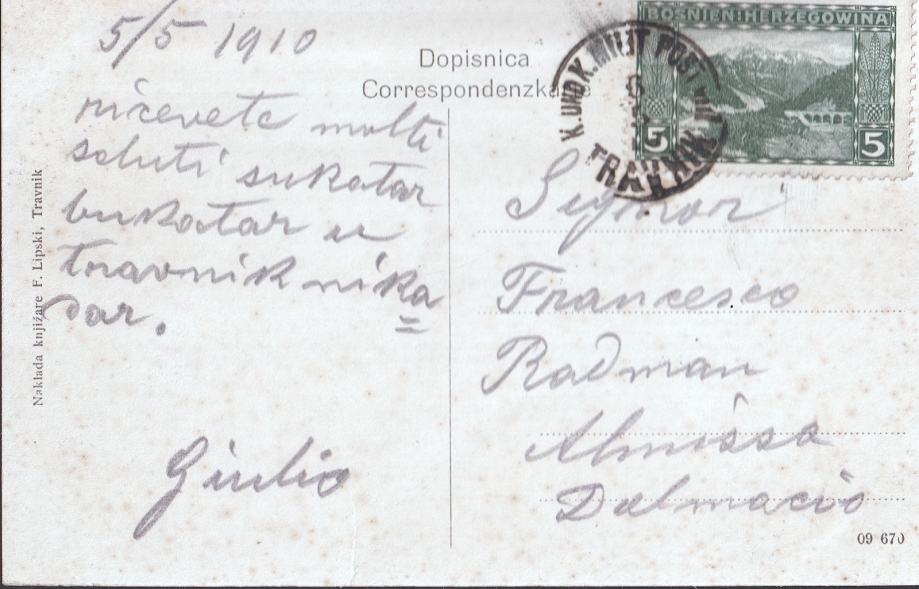 5/5 1910
ricevete molti
saluti sukatar
bukatar u
travnik nika
dar.
Giulio
Naklada knjižare F. Lipski, Travnik
Dopisnica
Correspondenzka
BOSNIEN-HERZEGOWINA
5 5
K. UND K. MILIT. POST
TRAVNIK
Signor
Francesco
Radman
Almissa
Dalmacia
09 670